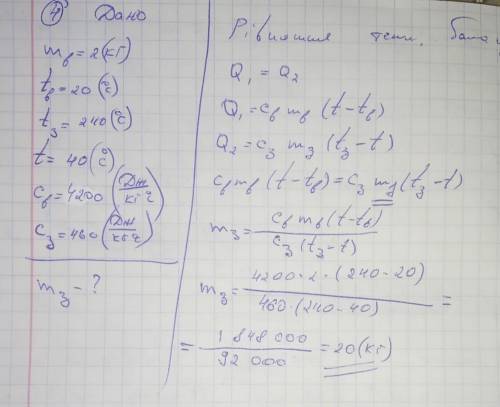 ④ Дано
m_в = 2 (кг)
t_в = 20 (°C)
t_з = 240 (°C)
t = 40 (°C)
c_в = 4200 (Дж / кг°С)
c_з = 460 (Дж / кг°С)
m_з - ?
Рівняння тепл.
Q₁ = Q₂
Q₁ = c_в m_в (t - t_в)
Q₂ = c_з m_з (t_з - t)
c_в m_в (t - t_в) = c_з m_з (t_з - t)
m_з = c_в m_в (t - t_в) / c_з (t_з - t)
m_з = 4200 · 2 · (240 - 20) / 460 · (240 - 40) =
= 1 848 000 / 92 000 = 20 (кг)